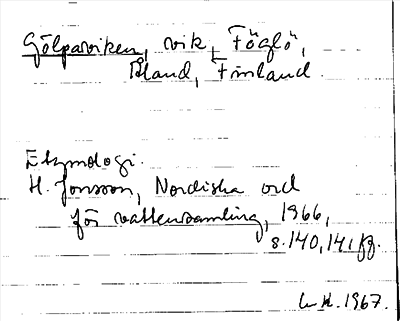 Gölparviken, vik, Föglö,
Åland, Finland.
Etymologi.
H. Jonsson, Nordiska ord
för vattensamling, 1966,
s. 140, 141 ff.
1967.